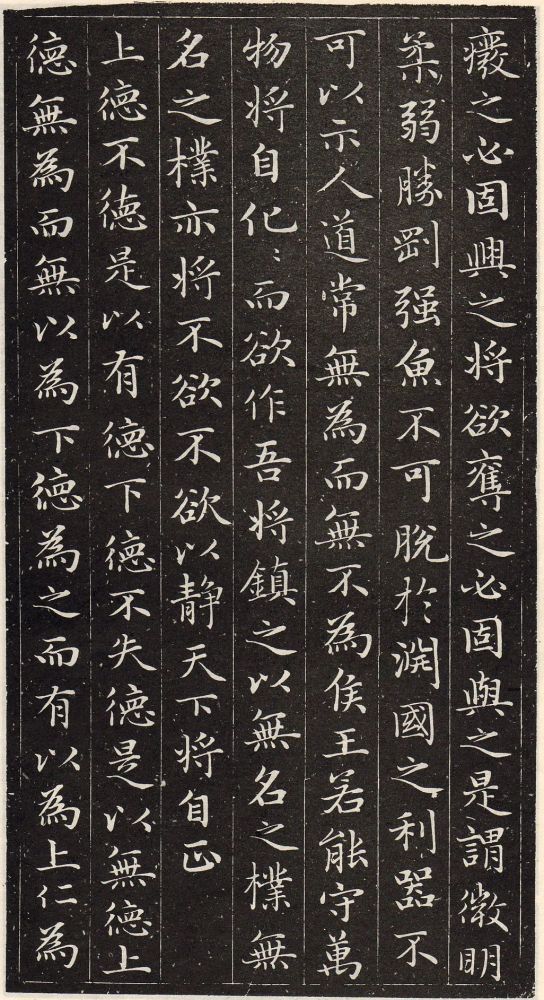 癈之必固興之将欲奪之必固與之是謂微明
柔弱勝剛强魚不可脫於渊國之利器不
可以示人道常無為而無不為侯王若能守萬
物将自化〻而欲作吾将鎮之以無名之樸無
名之樸亦将不欲不欲以静天下将自正
上德不德是以有德下德不失德是以無德上
德無為而無以為下德為之而有以為上仁為